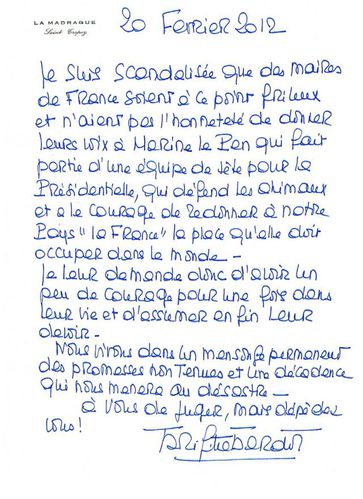 LA MADRAGUE
Saint Tropez
20 Fevrier 2012
Je suis scandalisée que des maires
de France soient à ce point frileux
et n'aient pas l'honneteté de donner
leurs voix à Marine le Pen qui fait
partie d'une équipe de tête pour la
Présidentielle, qui défend les animaux
et a le courage de redonner à notre
Pays "la France" la place qu'elle doit
occuper dans le monde -
Je leur demande donc d'avoir un
peu de courage pour une fois dans
leur vie et d'assumer enfin leur
devoir -
Nous vivons dans un mensonge permanent
des promesses non tenues et une décadence
qui nous menera au désastre -
à vous de juger, mais dépéchez
vous!
Brigitte Bardot